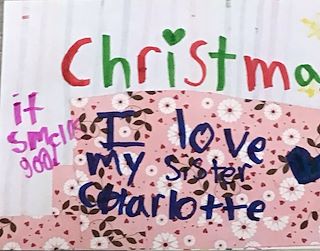 Christma
it
smells
good
I love
my Sister
Charlotte